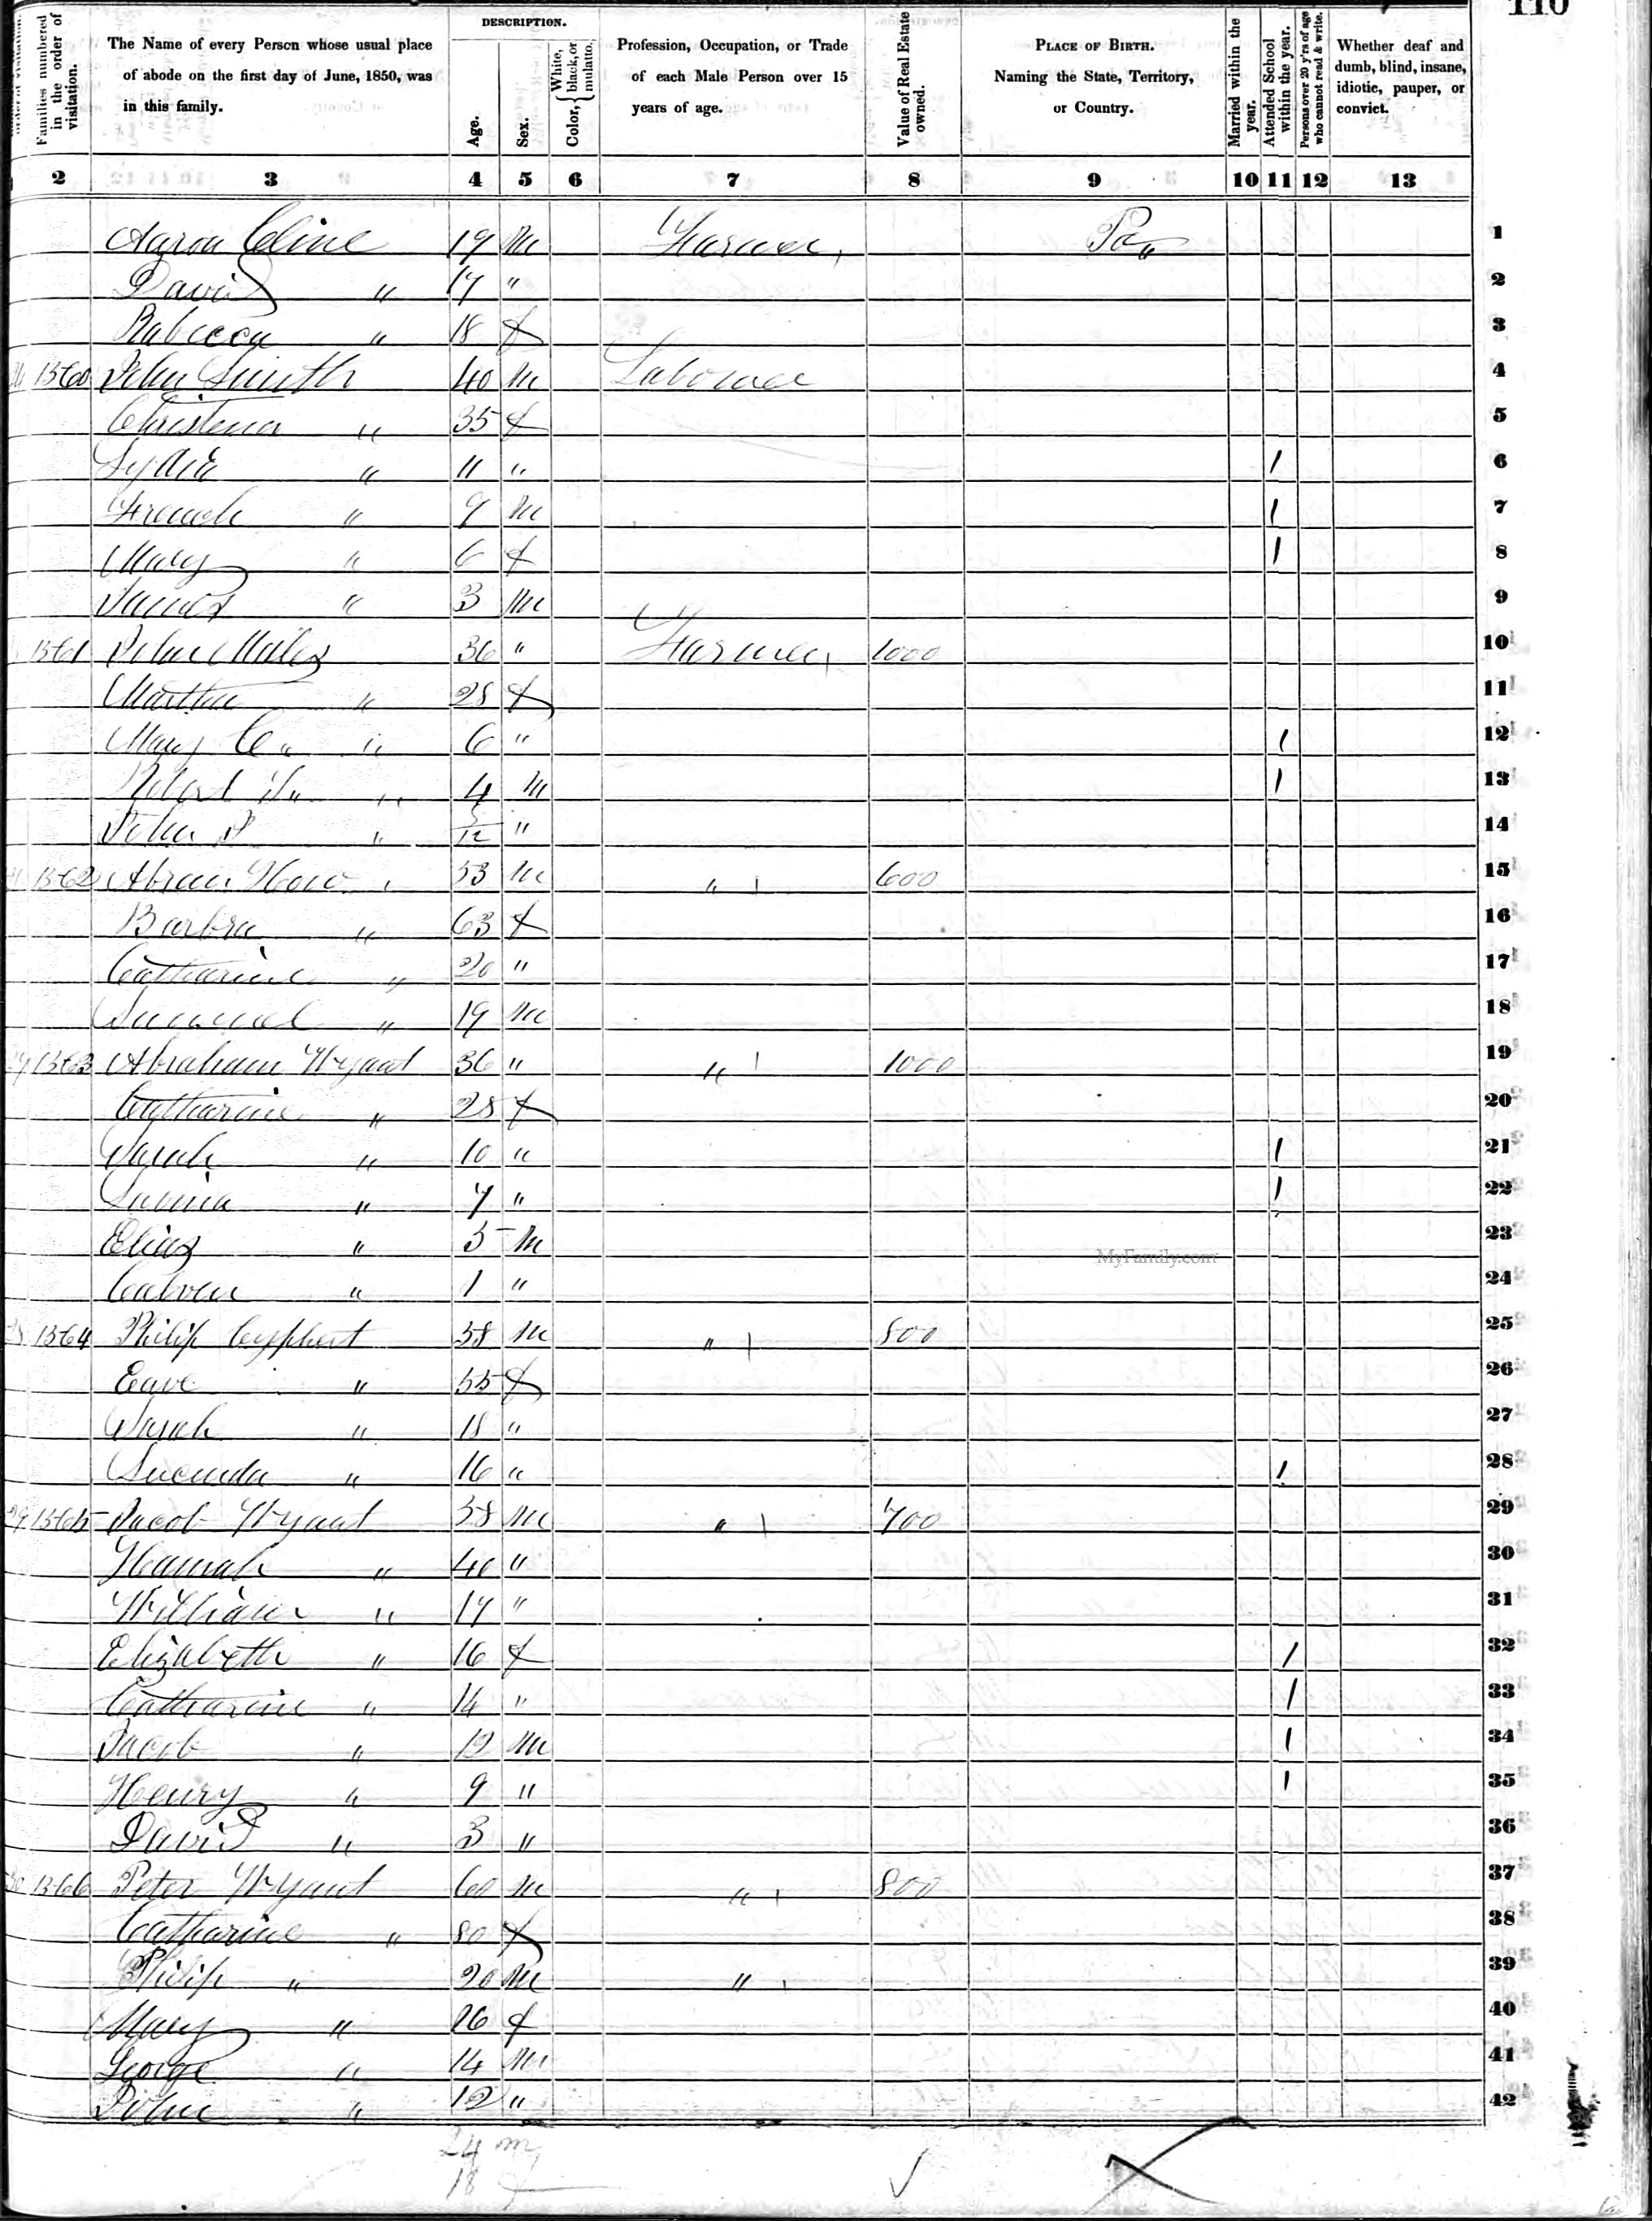 110
DESCRIPTION.
Families numbered in the order of visitation.
The Name of every Person whose usual place of abode on the first day of June, 1850, was in this family.
Age.
Sex.
Color, { White, black, or mulatto.
Profession, Occupation, or Trade of each Male Person over 15 years of age.
Value of Real Estate owned.
PLACE OF BIRTH. Naming the State, Territory, or Country.
Married within the year.
Attended School within the year.
Persons over 20 y'rs of age who cannot read & write.
Whether deaf and dumb, blind, insane, idiotic, pauper, or convict.
2 3 4 5 6 7 8 9 10 11 12 13
Aaron Cline 19 M Farmer Pa 1
David " 17 " 2
Rabecca " 18 f 3
1360 John Smith 40 M Labourer 4
Christena " 35 f 5
Lydia " 11 " 1 6
" 9 M 1 7
Mary " 6 f 1 8
James " 3 M 9
1361 John Miles 36 " Farmer 1000 10
Martha " 28 f 11
Mary C " 6 " 1 12
Robert " 4 M 1 13
John P " /12 " 14
1362 53 M " 600 15
Barbra " 63 f 16
Catharine " 20 " 17
Samuel " 19 M 18
1363 Abraham Wyant 36 " " 1000 19
Catharine " 28 f 20
Sarah " 10 " 1 21
Lavina " 7 " 1 22
Elias " 5 M 23
Calven " 1 " 24
1364 Philip Cyphert 58 M " 800 25
Eave " 55 f 26
Sarah " 18 " 27
Lucinda " 16 " 1 28
1365 Jacob Wyant 38 M " 700 29
Hannah " 40 " 30
William " 17 " 31
Elizabeth " 16 f 1 32
Catharine " 14 " 1 33
Jacob " 12 M 1 34
Henry " 9 " 1 35
David " 3 " 36
1366 Peter Wyant 60 M " 800 37
Catharine " 50 f 38
Philip " 20 M " 39
Mary " 16 f 40
George " 14 M 41
John " 12 " 42
MyFamily.com
24 m
18 f